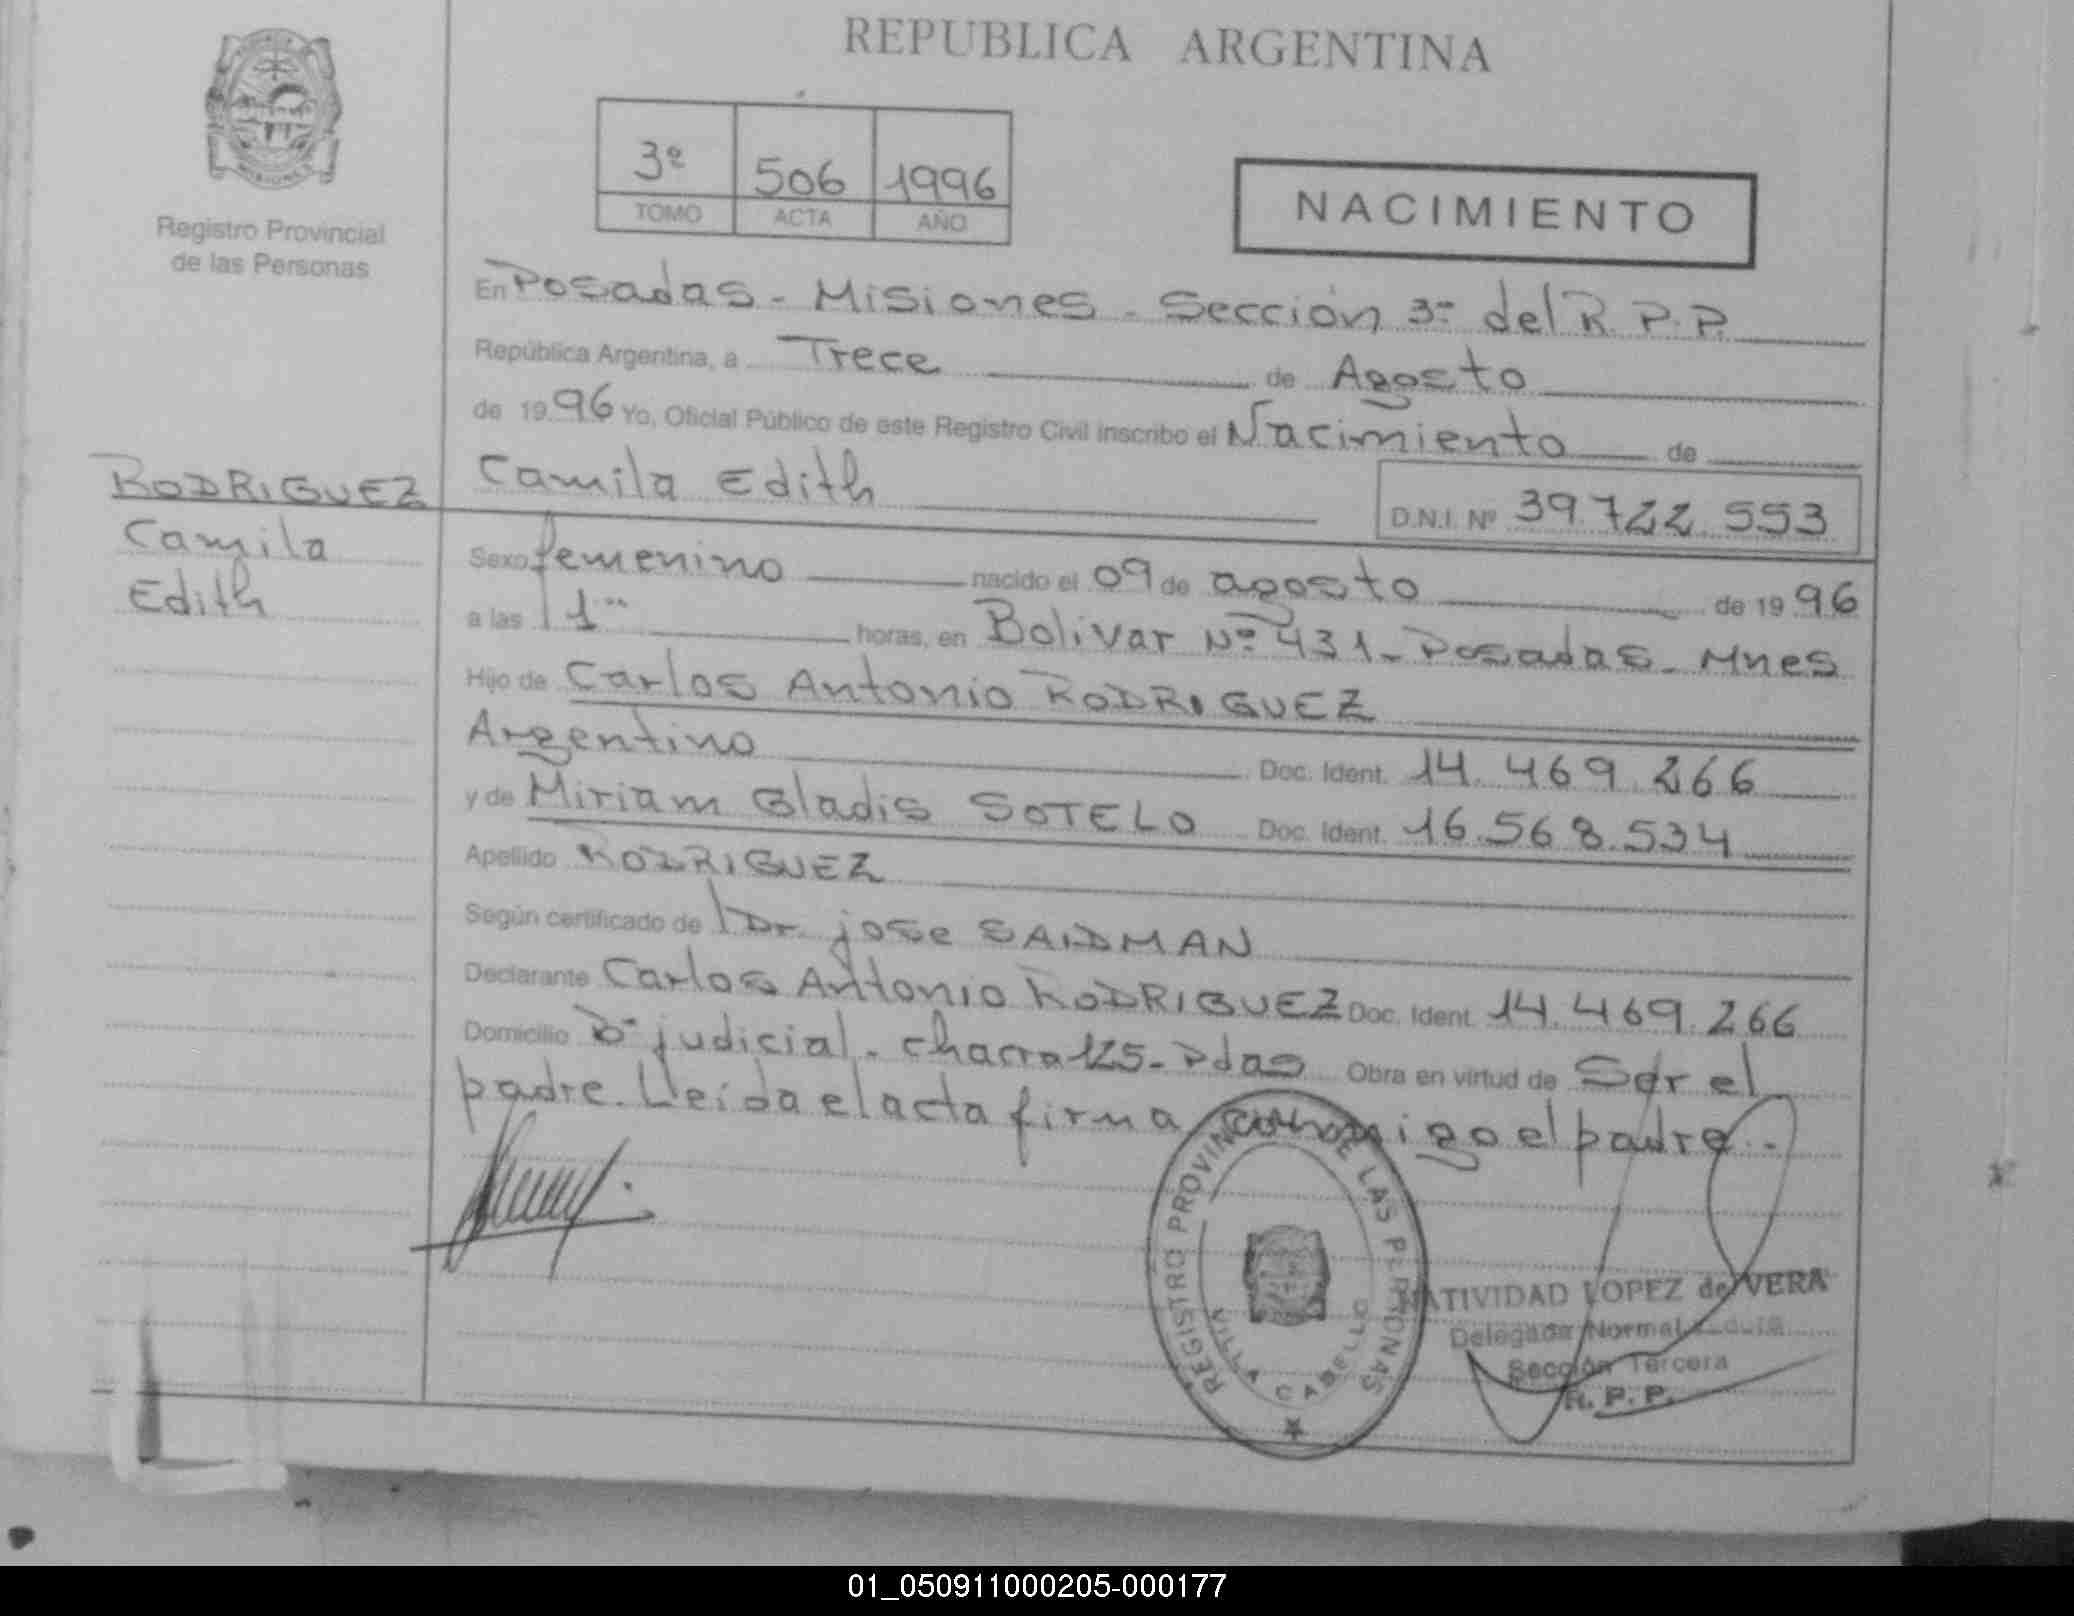 REPUBLICA ARGENTINA
3º 506 1996
TOMO ACTA AÑO
NACIMIENTO
Registro Provincial
de las Personas
En Posadas - Misiones - Sección 3ª del R. P. P.
República Argentina, a Trece de Agosto
de 1996 Yo, Oficial Público de este Registro Civil inscribo el Nacimiento de
RODRIGUEZ
Camila
Edith
Camila Edith
D.N.I. Nº 39.722.553
Sexo femenino nacido el 09 de agosto de 1996
a las 11 horas, en Bolivar Nº 431 - Posadas - Mnes
Hijo de Carlos Antonio RODRIGUEZ
Argentino Doc. Ident. 14.469.266
y de Miriam Gladis SOTELO Doc. Ident. 16.568.534
Apellido RODRIGUEZ
Según certificado de Dr. jose SAIDMAN
Declarante Carlos Antonio RODRIGUEZ Doc. Ident. 14.469.266
Domicilio Bº judicial - chacra 125 - Pdas Obra en virtud de Ser el
padre. Leída el acta firma conmigo el padre.-
REGISTRO PROVINCIAL DE LAS PERSONAS
CABELLO
NATIVIDAD LOPEZ de VERA
Delegada Normal
Sección Tercera
R. P. P.
01_050911000205-000177